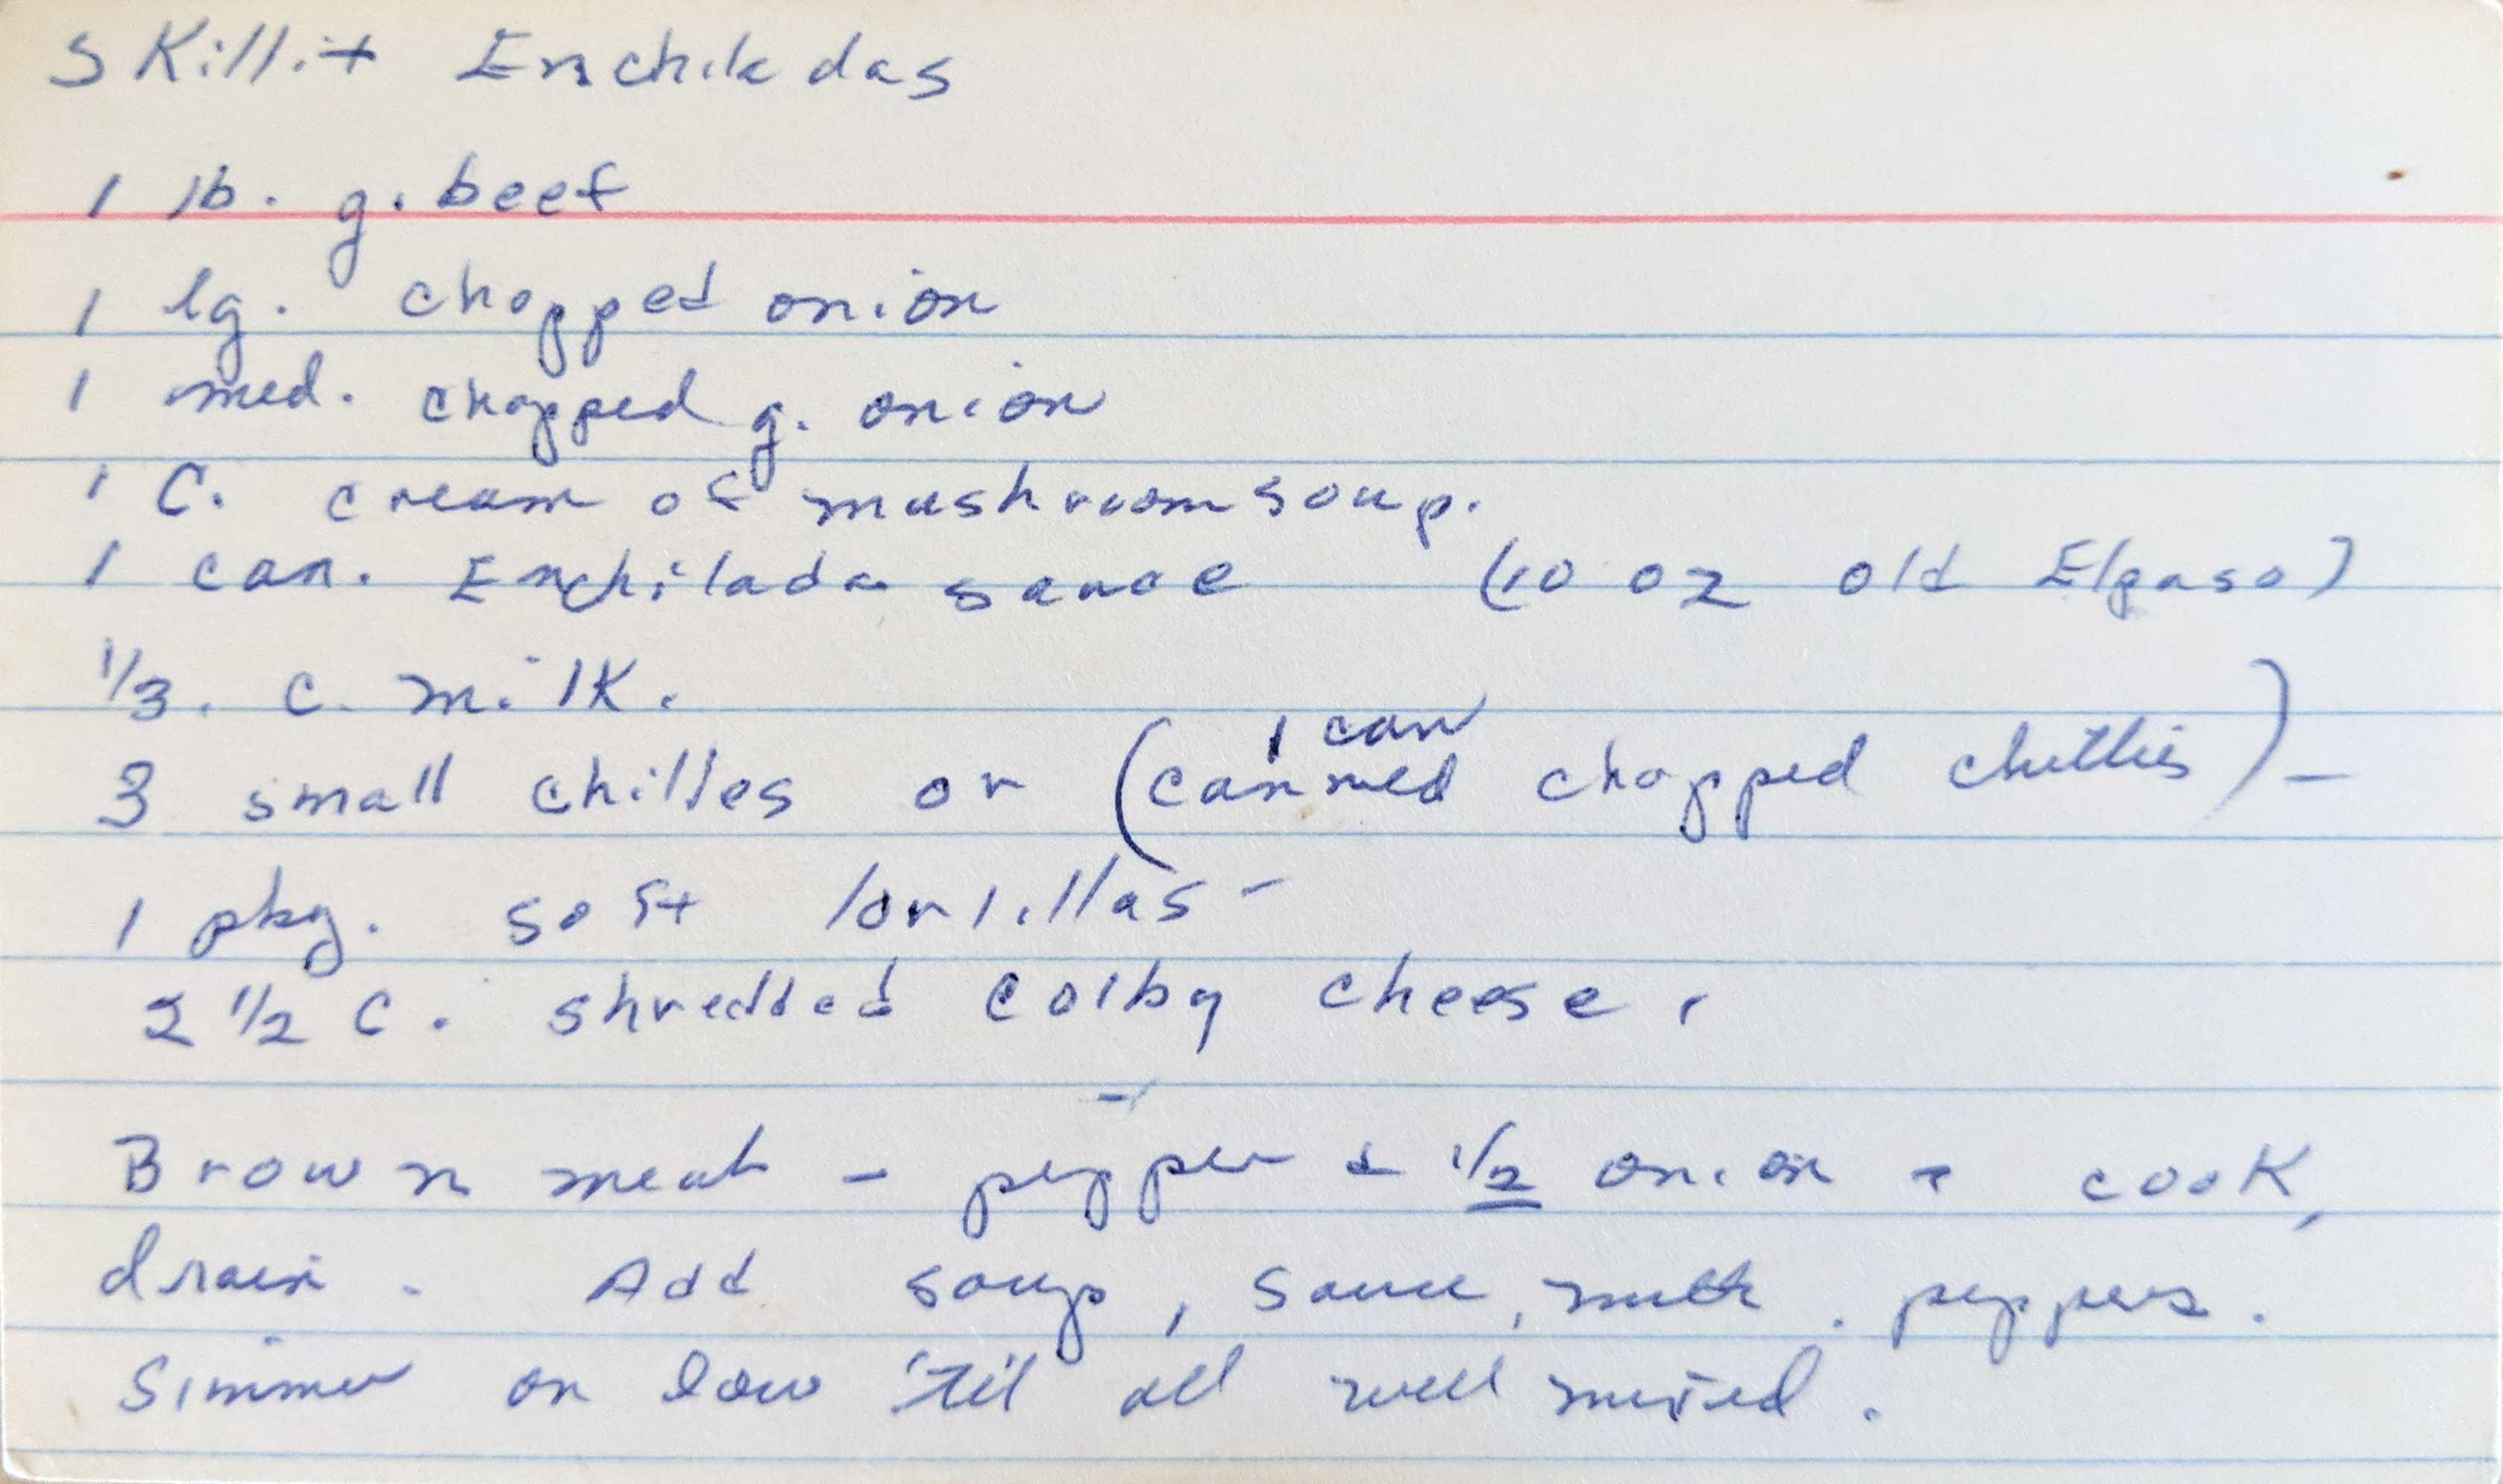 Skillit Enchiladas
1 lb. g. beef
1 lg. chopped onion
1 med. chopped g. onion
1 C. cream of mushroom soup.
1 can. Enchilada sauce (10 oz old Elpaso)
1/3. c. milk.
1 can
3 small chilles or (canned chopped chillies) -
1 pkg. soft tortillas -
2 1/2 c. shredded colby cheese.
Brown meat - pepper & 1/2 onion & cook,
drain. Add soup, sauce, milk. peppers.
Simmer on low 'til all well mixed.